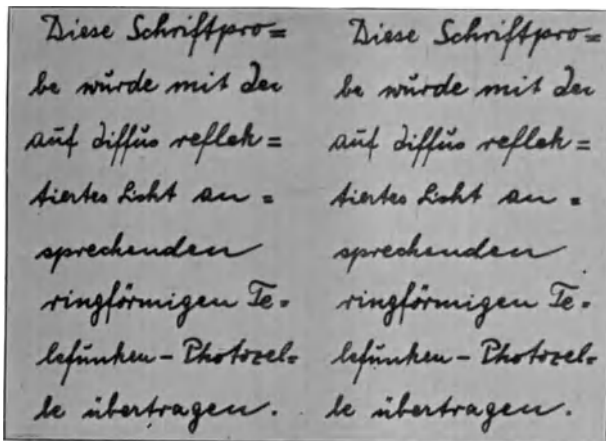 Diese Schriftpro=
be wurde mit der
auf diffus reflek=
tiertes Licht an=
sprechenden
ringförmigen Te=
lefunken - Photozel=
le übertragen.
Diese Schriftpro=
be wurde mit der
auf diffus reflek=
tiertes Licht an=
sprechenden
ringförmigen Te=
lefunken - Photozel=
le übertragen.